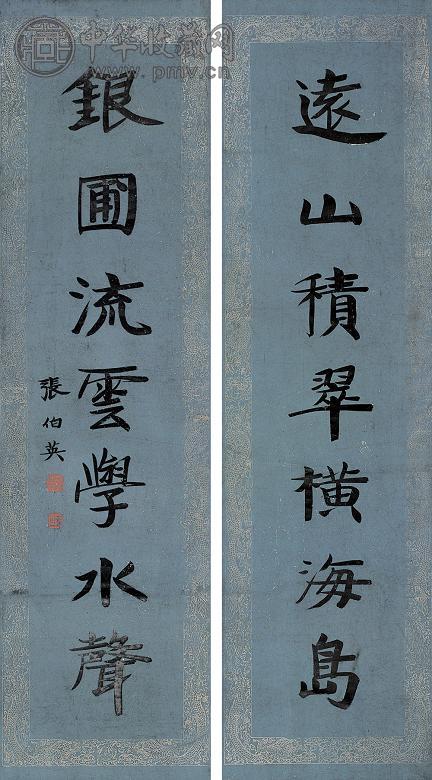 中华收藏网
www.pmv.cn
遠山積翠橫海島
銀圃流雲學水聲
張伯英